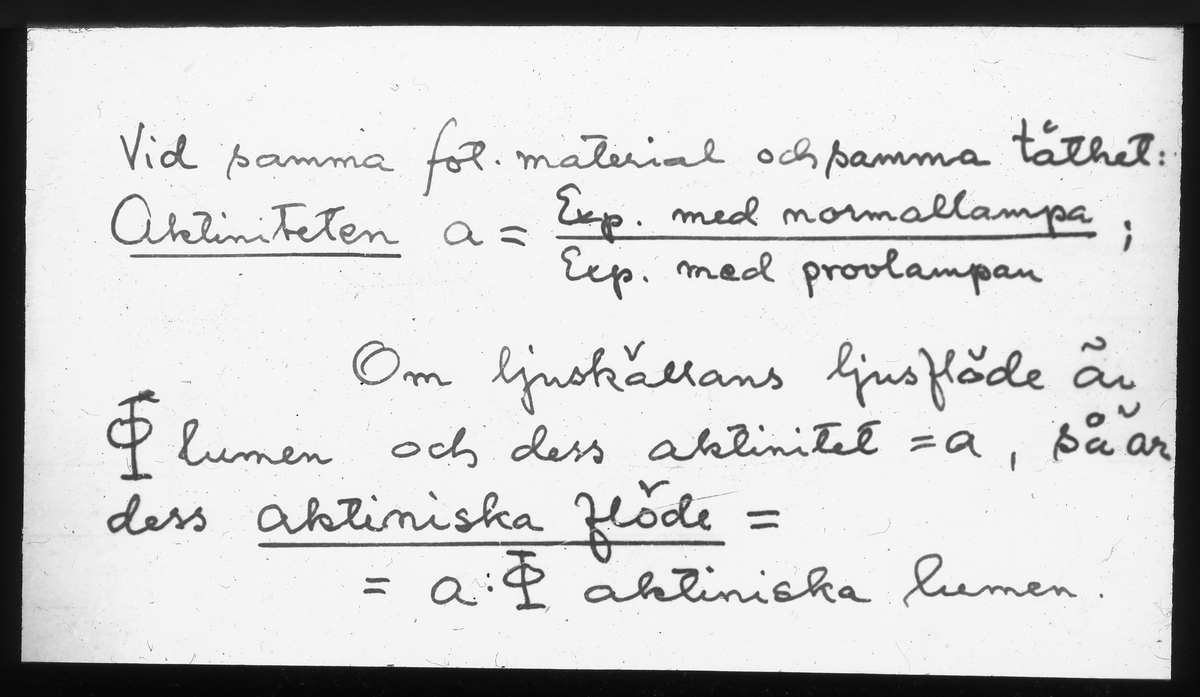 Vid samma fot. material och samma täthet:
Aktiniteten a = Exp. med normallampa ;
Exp. med provlampan
Om ljuskällans ljusflöde är
Φ lumen och dess aktinitet = a, så är
dess aktiniska flöde =
= a·Φ aktiniska lumen.